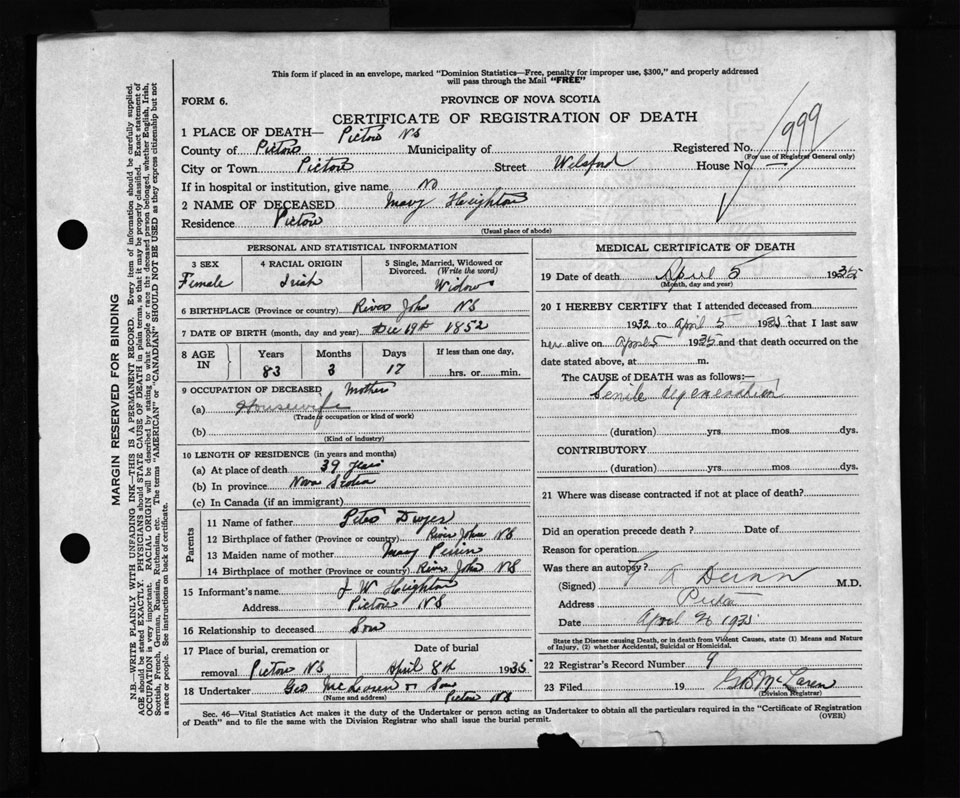 This form if placed in an envelope, marked "Dominion Statistics—Free, penalty for improper use, $300," and properly addressed
will pass through the Mail "FREE"
FORM 6.
PROVINCE OF NOVA SCOTIA
CERTIFICATE OF REGISTRATION OF DEATH
1 PLACE OF DEATH— Pictou NS
County of Pictou Municipality of Registered No. 999
(For use of Registrar General only)
City or Town Pictou Street Welsford House No. —
If in hospital or institution, give name No
2 NAME OF DECEASED Mary Heighton
Residence Pictou
(Usual place of abode)
PERSONAL AND STATISTICAL INFORMATION
3 SEX 4 RACIAL ORIGIN 5 Single, Married, Widowed or
Divorced. (Write the word)
Female Irish Widow
6 BIRTHPLACE (Province or country) River John NS
7 DATE OF BIRTH (month, day and year) Dec 19th 1852
8 AGE IN Years Months Days If less than one day,
83 3 17 hrs. or min.
9 OCCUPATION OF DECEASED Mother
(a) Housewife
(Trade or occupation or kind of work)
(b)
(Kind of industry)
10 LENGTH OF RESIDENCE (in years and months)
(a) At place of death 39 years
(b) In province Nova Scotia
(c) In Canada (if an immigrant)
Parents
11 Name of father Peter Dwyer
12 Birthplace of father (Province or country) River John NS
13 Maiden name of mother Mary Perrin
14 Birthplace of mother (Province or country) River John NS
15 Informant's name J W Heighton
Address Pictou NS
16 Relationship to deceased Son
17 Place of burial, cremation or Date of burial
removal Pictou NS April 8th 1935
18 Undertaker Geo McLaren & Son
(Name and address) Pictou NS
MEDICAL CERTIFICATE OF DEATH
19 Date of death April 5 1935
(Month, day and year)
20 I HEREBY CERTIFY that I attended deceased from
1932 to April 5 1935 that I last saw
her alive on April 5 1935 and that death occurred on the
date stated above, at m.
The CAUSE OF DEATH was as follows:—
Senile degeneration
(duration) yrs. mos. dys.
CONTRIBUTORY
(duration) yrs. mos. dys.
21 Where was disease contracted if not at place of death?
Did an operation precede death? Date of
Reason for operation
Was there an autopsy?
(Signed) A Dunn M.D.
Address Pictou
Date April 1935
State the Disease causing Death, or in death from Violent Causes, state (1) Means and Nature
of Injury, (2) whether Accidental, Suicidal or Homicidal.
22 Registrar's Record Number 9
23 Filed 19 McLaren
(Division Registrar)
Sec. 46—Vital Statistics Act makes it the duty of the Undertaker or person acting as Undertaker to obtain all the particulars required in the "Certificate of Registration
of Death" and to file the same with the Division Registrar who shall issue the burial permit.
(OVER)
MARGIN RESERVED FOR BINDING
N.B.—WRITE PLAINLY WITH UNFADING INK—THIS IS A PERMANENT RECORD. Every item of information should be carefully supplied.
AGE should be stated EXACTLY. PHYSICIANS should STATE CAUSE OF DEATH in plain terms, so that it may be properly classified. Exact statement of
OCCUPATION is very important. RACIAL ORIGIN will be described by stating to what people or race the deceased person belonged, whether English, Irish,
Scottish, French, German, Russian, Ruthenian, etc. The terms "AMERICAN" or "CANADIAN" SHOULD NOT BE USED as they express citizenship but not
a race or people. See instructions on back of certificate.